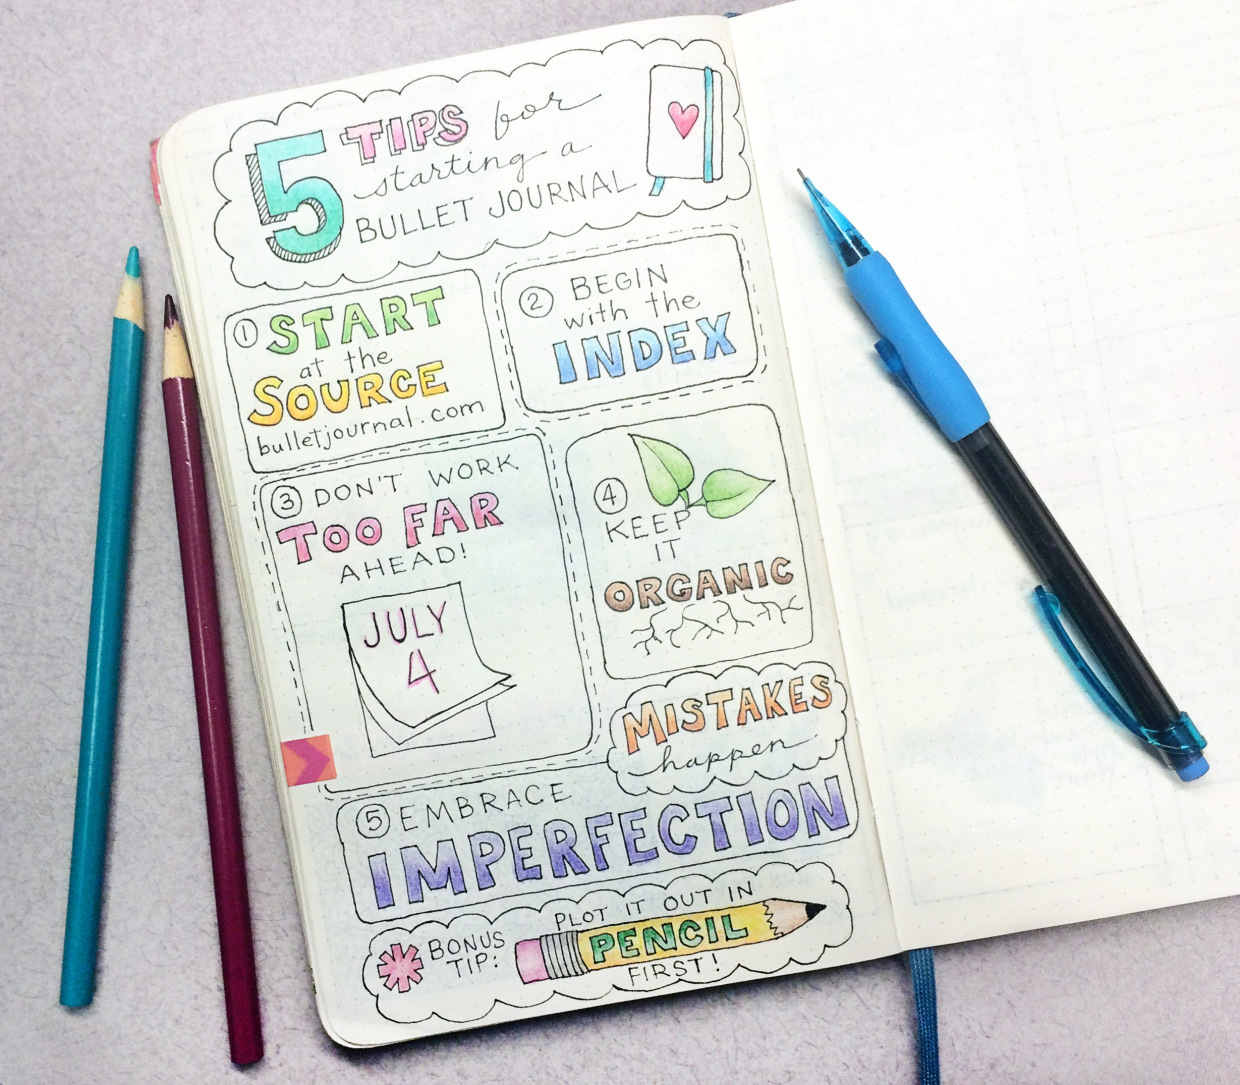 5 TIPS for
starting a
BULLET JOURNAL
① START
at the
SOURCE
bulletjournal.com
② BEGIN
with the
INDEX
③ DON'T WORK
TOO FAR
AHEAD!
JULY
4
④
KEEP
IT
ORGANIC
MISTAKES
happen
⑤ EMBRACE
IMPERFECTION
BONUS
TIP:
PLOT IT OUT IN
PENCIL
FIRST!